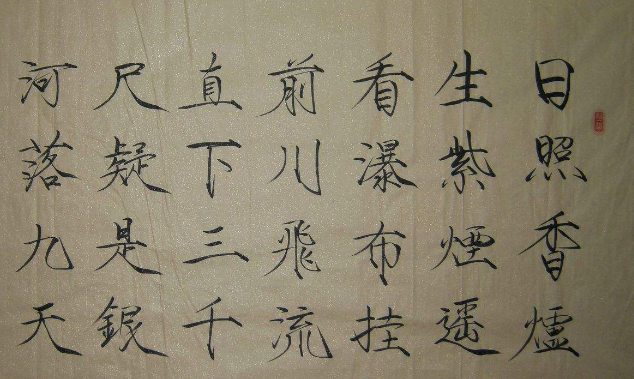 日照香爐
生紫煙遥
看瀑布挂
前川飛流
直下三千
尺疑是銀
河落九天